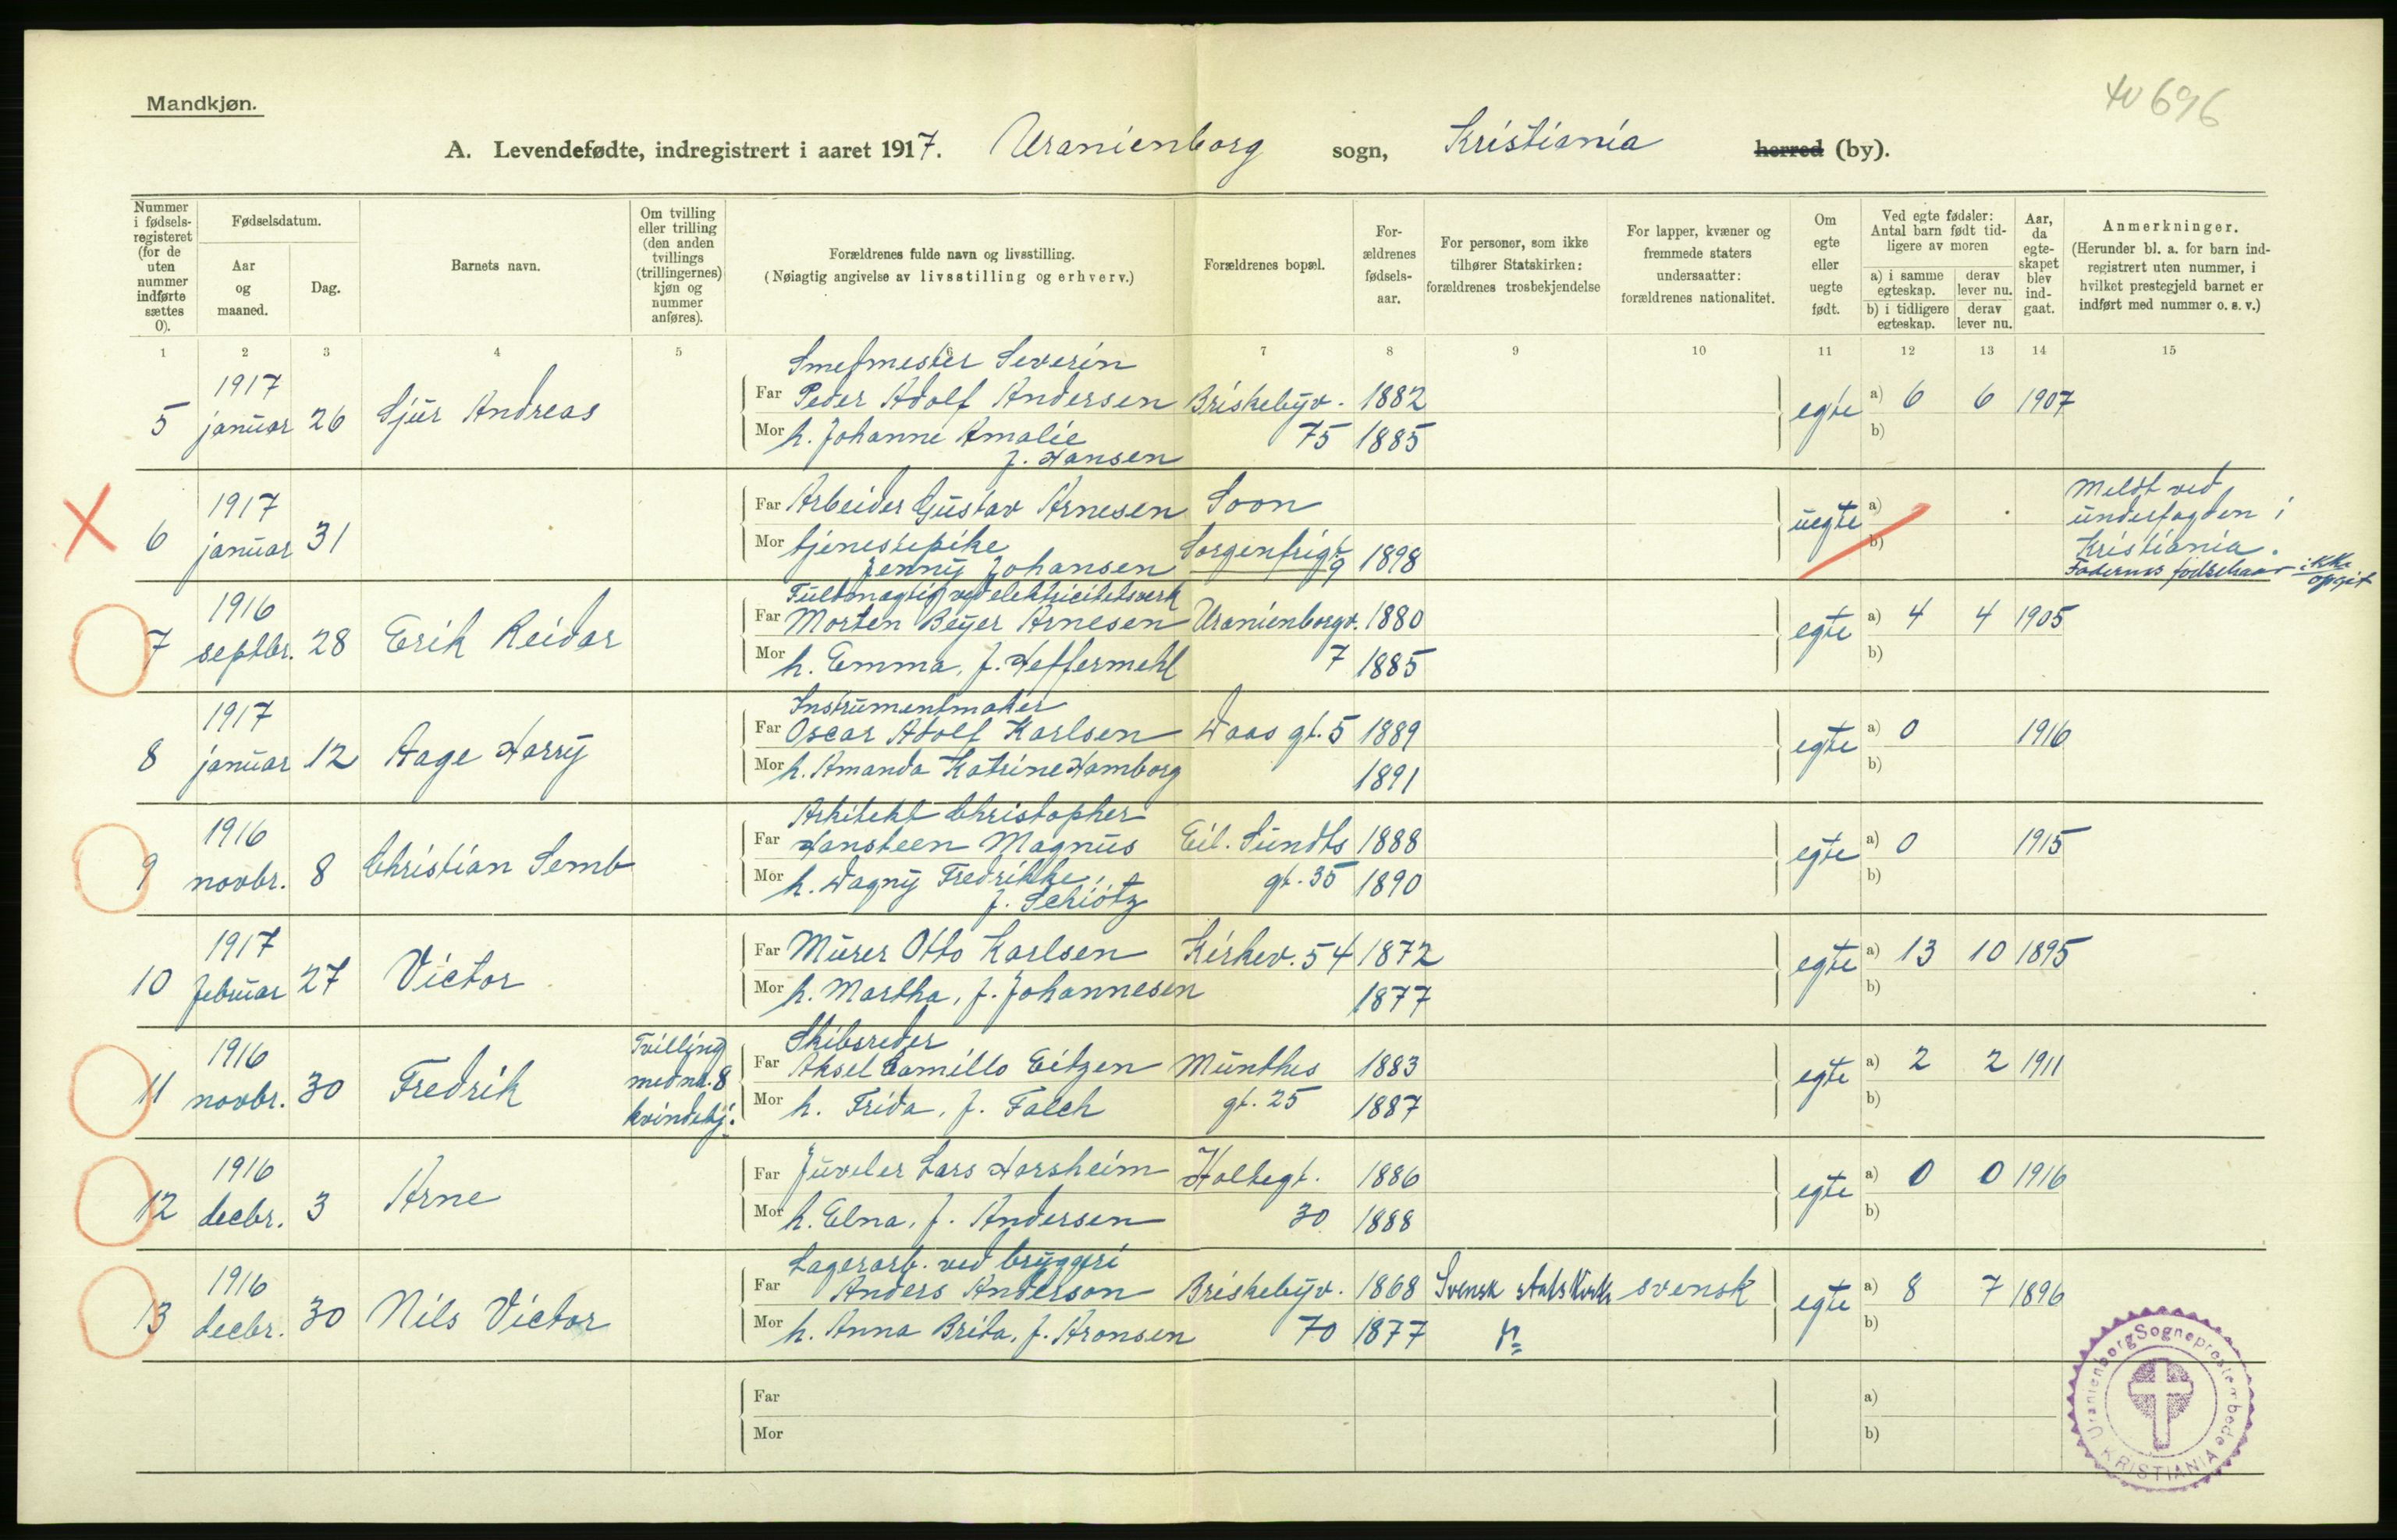 Mandkjøn.
696
A. Levendefødte, indregistrert i aaret 1917. Uranienborg sogn, Kristiania herred (by).
Nummer i fødsels-registeret (for de uten nummer indførte sættes 0).
Fødselsdatum.
Aar og maaned.
Dag.
Barnets navn.
Om tvilling eller trilling (den anden tvillings (trillingernes) kjøn og nummer anføres).
Forældrenes fulde navn og livsstilling.
(Nøiagtig angivelse av livsstilling og erhverv.)
Forældrenes bopæl.
For-ældrenes fødsels-aar.
For personer, som ikke tilhører Statskirken: forældrenes trosbekjendelse
For lapper, kvæner og fremmede staters undersaatter: forældrenes nationalitet.
Om egte eller uegte født.
Ved egte fødsler: Antal barn født tid-ligere av moren
a) i samme egteskap.
derav lever nu.
b) i tidligere egteskap.
derav lever nu.
Aar, da egte-skapet blev ind-gaat.
Anmerkninger.
(Herunder bl. a. for barn ind-registrert uten nummer, i hvilket prestegjeld barnet er indført med nummer o. s. v.)
1 2 3 4 5 6 7 8 9 10 11 12 13 14 15
Smedmester Severin
1917
5 januar 26 Sjur Andreas Far Peder Adolf Andersen Briskebyv. 1882 egte a) 6 6 1907
Mor h. Johanne Amalie 75 1885 b)
f. Hansen
1917
6 januar 31 Far Arbeider Gustav Arnesen Soon uegte a)
Mor tjenestepike Sorgenfrigt. 1898 b)
Jenny Johansen 9
Meldt ved
underfogden i
Kristiania.
Faderens fødselsaar ikke
opgit
Fuldmægtig ved elektricitetsverk
1916
7 septbr. 28 Erik Reidar Far Morten Beyer Arnesen Uranienborgv. 1880 egte a) 4 4 1905
Mor h. Emma, f. Heffermehl 7 1885 b)
Instrumentmaker
1917
8 januar 12 Aage Harry Far Oscar Adolf Karlsen Daas gt. 5 1889 egte a) 0 1916
Mor h. Amanda Katrine Hamborg 1891 b)
Arkitekt Christopher
1916
9 novbr. 8 Christian Semb Far Hansteen Magnus Eil. Sundts 1888 egte a) 0 1915
Mor h. Dagny Fredrikke, gt. 35 1890 b)
f. Schiötz
1917
10 februar 27 Victor Far Murer Otto Karlsen Kirkev. 54 1872 egte a) 13 10 1895
Mor h. Martha, f. Johannesen 1877 b)
Skibsreder
1916
11 novbr. 30 Fredrik Tvilling med nr. 8 kvindekj. Far Aksel Camillo Eitzen Munthes 1883 egte a) 2 2 1911
Mor h. Frida, f. Falch gt. 25 1887 b)
1916
12 decbr. 3 Arne Far Juveler Lars Harsheim Holtegt. 1886 egte a) 0 0 1916
Mor h. Elna, f. Andersen 30 1888 b)
Lagerarb. ved bryggeri
1916
13 decbr. 30 Nils Victor Far Anders Anderson Briskebyv. 1868 Svensk statskirke svensk egte a) 8 7 1896
Mor h. Anna Brita, f. Aronsen 70 1877 b)
Far a)
Mor b)
Uranienborg Sogneprestembede
KRISTIANIA